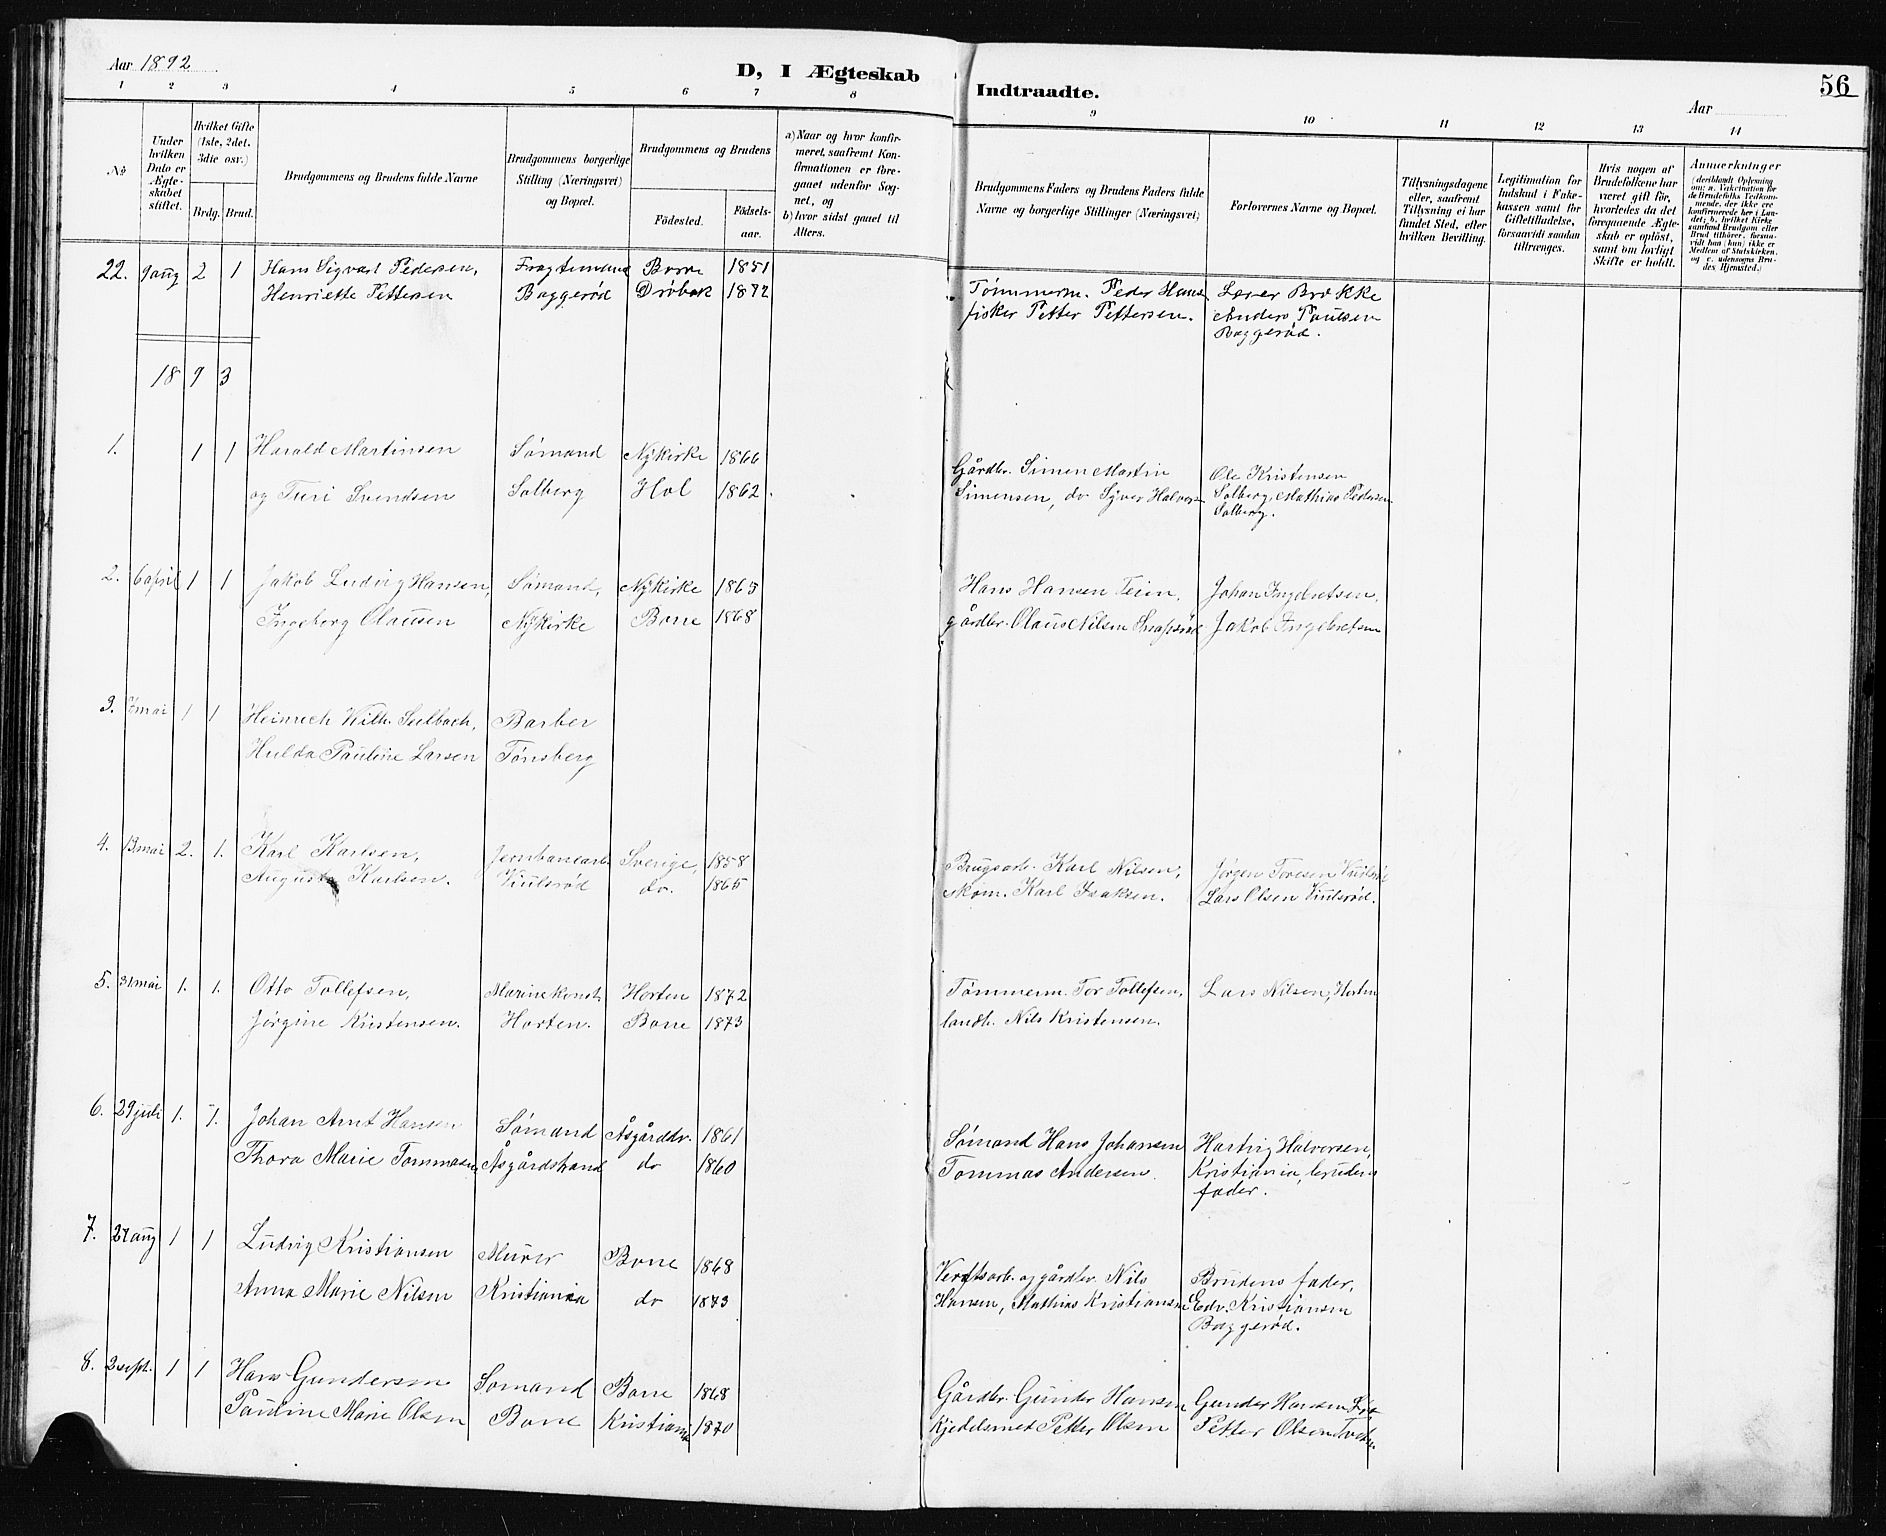 Aar 1892
D, I Ægteskab Indtraadte.
Aar
56
1 2 3 4 5 6 7 8 9 10 11 12 13 14
No
Under hvilken Dato er Ægteskabet stiftet.
Hvilket Gifte (1ste, 2det, 3die osv.)
Brdg. Brud.
Brudgommens og Brudens fulde Navne
Brudgommens borgerlige Stilling (Næringsvei) og Bopæl.
Brudgommens og Brudens
Födested. Födselsaar.
a) Naar og hvor konfirmeret, saafremt Konfirmationen er foregaaet udenfor Sognet, og
b) hvor sidst gaaet til Alters.
Brudgommens Faders og Brudens Faders fulde Navne og borgerlige Stillinger (Næringsvei)
Forlovernes Navne og Bopæl.
Tillysningsdagene eller, saafremt Tillysning ei har fundet Sted, efter hvilken Bevilling.
Legitimation for Indskud i Enkekassen samt for Giftetilladelse, forsaavidt saadan tiltrænges.
Hvis nogen af Brudefolkene har været gift før, hvorledes da det foregaaende Ægteskab er opløst, samt om lovligt Skifte er holdt.
Anmerkninger
(deriblandt Oplysning om: a. Vakcination for de Brudefolks Vedkommende, der ikke ere konfirmerede her i Landet; b. hvilket Kirkesamfund Brudgom eller Brud tilhører, forsaavidt han (hun) ikke er Medlem af Statskirken, og c. udensogns Brudes Hjemsted.)
22. 9 aug 2 1 Hans Sigvart Pedersen, Fragtemand Borre 1851 Tømmerm. Peder Hans. Lærer Brekke
Henriette Pettersen Baggerød Drøbak 1872 fisker Petter Pettersen. Anders Paulsen
Baggerød.
1893
1. 1 1 Harald Martinsen Sømand Nykirke 1866 Gårdbr. Simen Martin Ole Kristensen
og Turi Svendsen Solberg Hol 1862. Simensen, do Syver Halvorsen Solberg, Mathias Pedersen
Solberg.
2. 6 april 1 1 Jakob Ludvig Hansen, Sømand, Nykirke 1865 Hans Hansen Teien, Johan Ingebretsen,
Ingeborg Clausen Nykirke Borre 1868 gårdbr. Claus Nilsen Snapsrød Jakob Ingebretsen
3. 7 mai 1 1 Heinrich Wilh. Seelbach, Barber
Hulda Pauline Larsen Tønsberg
4. 13 mai 2. 1. Karl Karlsen, Jernbanearb. Sverige, 1858 Brugsarb. Karl Nilsen, Jørgen Toresen Viulsrød
Augusta Karlsen. Viulsrød do. 1865 skom. Karl Isaksen. Lars Olsen Viulsrød.
5. 31 mai 1. 1. Otto Tollefsen, Marinekonst. Horten 1872 Tømmerm. Tor Tollefsen, Lars Nilsen, Horten
Jørgine Kristensen. Horten. Borre 1873 landh. Nils Kristensen.
6. 29 juli 1. 1. Johan Arnt Hansen Sømand Åsgårdstr. 1861 Sømand Hans Johansen Hartvig Halvorsen,
Thora Marie Tommasen Åsgårdstrand do 1860 Tommas Andersen. Kristiania, brudens
fader.
7. 27 aug 1 1 Ludvig Kristiansen Murer Borre 1868 Verftsarb. og gårdbr. Nils Brudens fader,
Anna Marie Nilsen Kristiania do 1873 Hansen, Mathias Kristiansen Edv. Kristiansen
Baggerød.
8. 2 sept. 1 1 Hans Gundersen Sømand Borre 1868 Gårdbr. Gunder Hansen Gunder Hansen
Pauline Marie Olsen Borre Kristiania 1870 Kjedelsmed Petter Olsen Petter Olsen